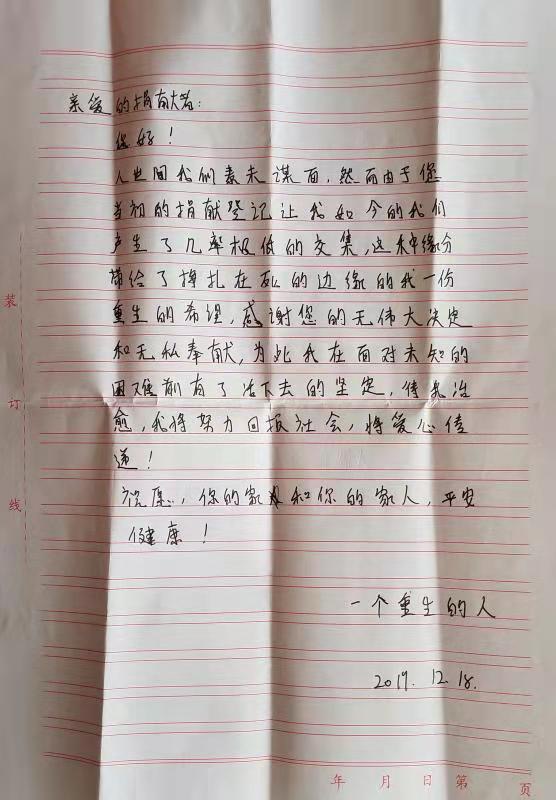 亲爱的捐献者:
您好!
人世间我们素未谋面,然而由于您
当初的捐献登记让我如今的我们
产生了几率极低的交集,这种缘分
带给了挣扎在死的边缘的我一份
重生的希望,感谢您的无伟大决定
和无私奉献,为此我在面对未知的
困难前有了活下去的坚定,待我治
愈,我将努力回报社会,将爱心传
递!
祝愿,你的家和你的家人,平安
健康!
一个重生的人
2019.12.18.
装
订
线
年 月 日 第 页